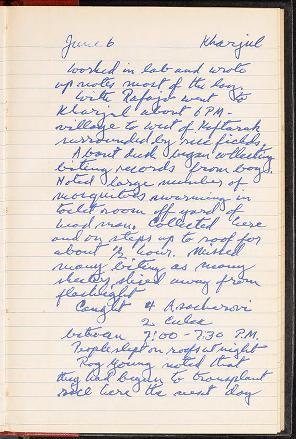 June 6 Kharjul
Worked in lab and wrote
up notes most of the day.
With Rafajo went to
Kharjul about 6 PM -
village to west of Keftarak
surrounded by rice fields.
About dusk began collecting
biting records from boys.
Noted large number of
mosquitoes swarming in
toilet room off yard of
head man. Collected here
and on steps up to roof for
about ½ hour. Missed
many biting as many
shied away from
flashlight
Caught 4 A sacharovi
2 Culex
between 7:00 - 7:30 P.M.
People slept on roofs at night
Roy Young noted that
they had begun to transplant
rice here the next day